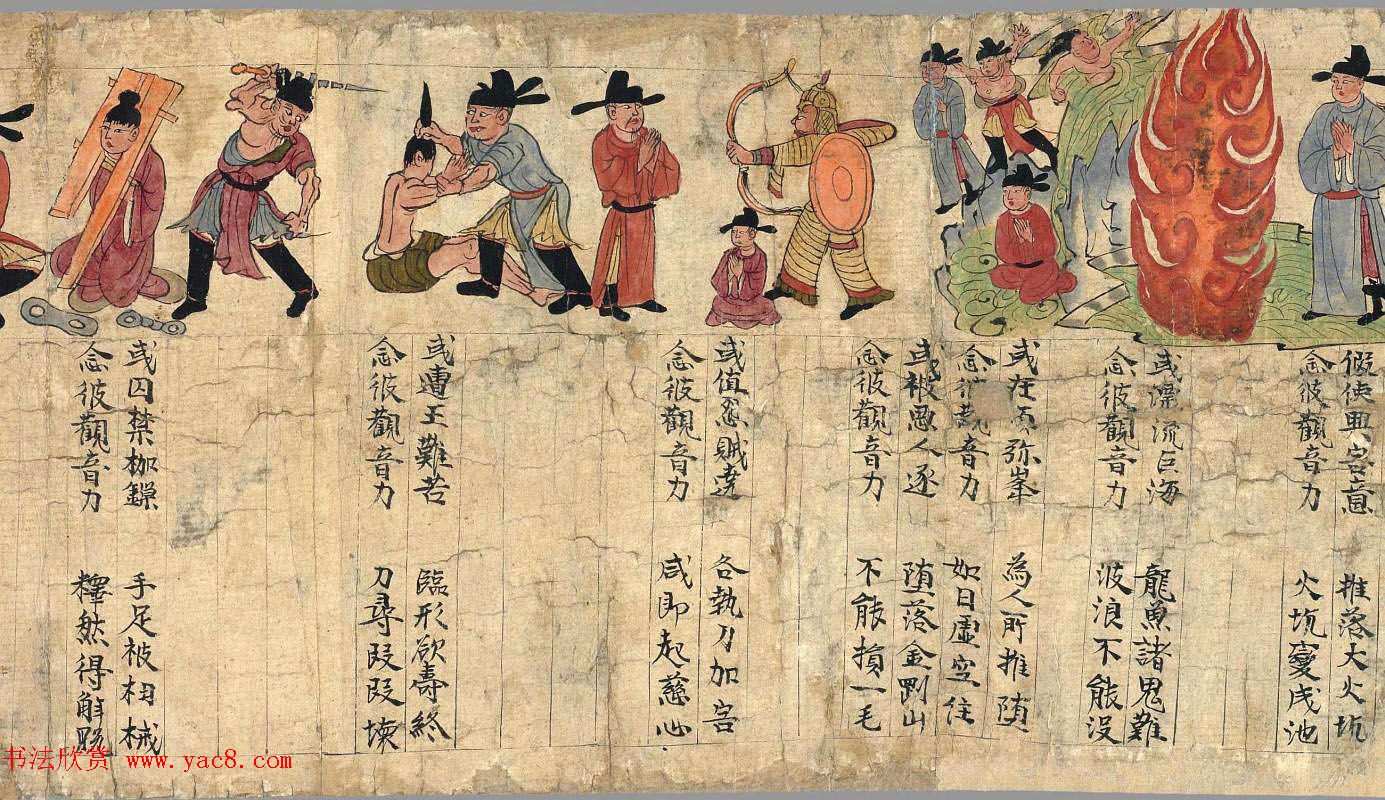 假使興害意 推落大火坑
念彼觀音力 火坑變成池
或漂流巨海 龍魚諸鬼難
念彼觀音力 波浪不能没
或在須弥峯 為人所推堕
念彼觀音力 如日虛空住
或被惡人逐 堕落金剛山
念彼觀音力 不能損一毛
或值怨賊遶 各執刀加害
念彼觀音力 咸即起慈心
或遭王難苦 臨形欲壽終
念彼觀音力 刀尋段段壞
或囚禁枷鏁 手足被杻械
念彼觀音力 釋然得解脱
书法欣赏 www.yac8.com